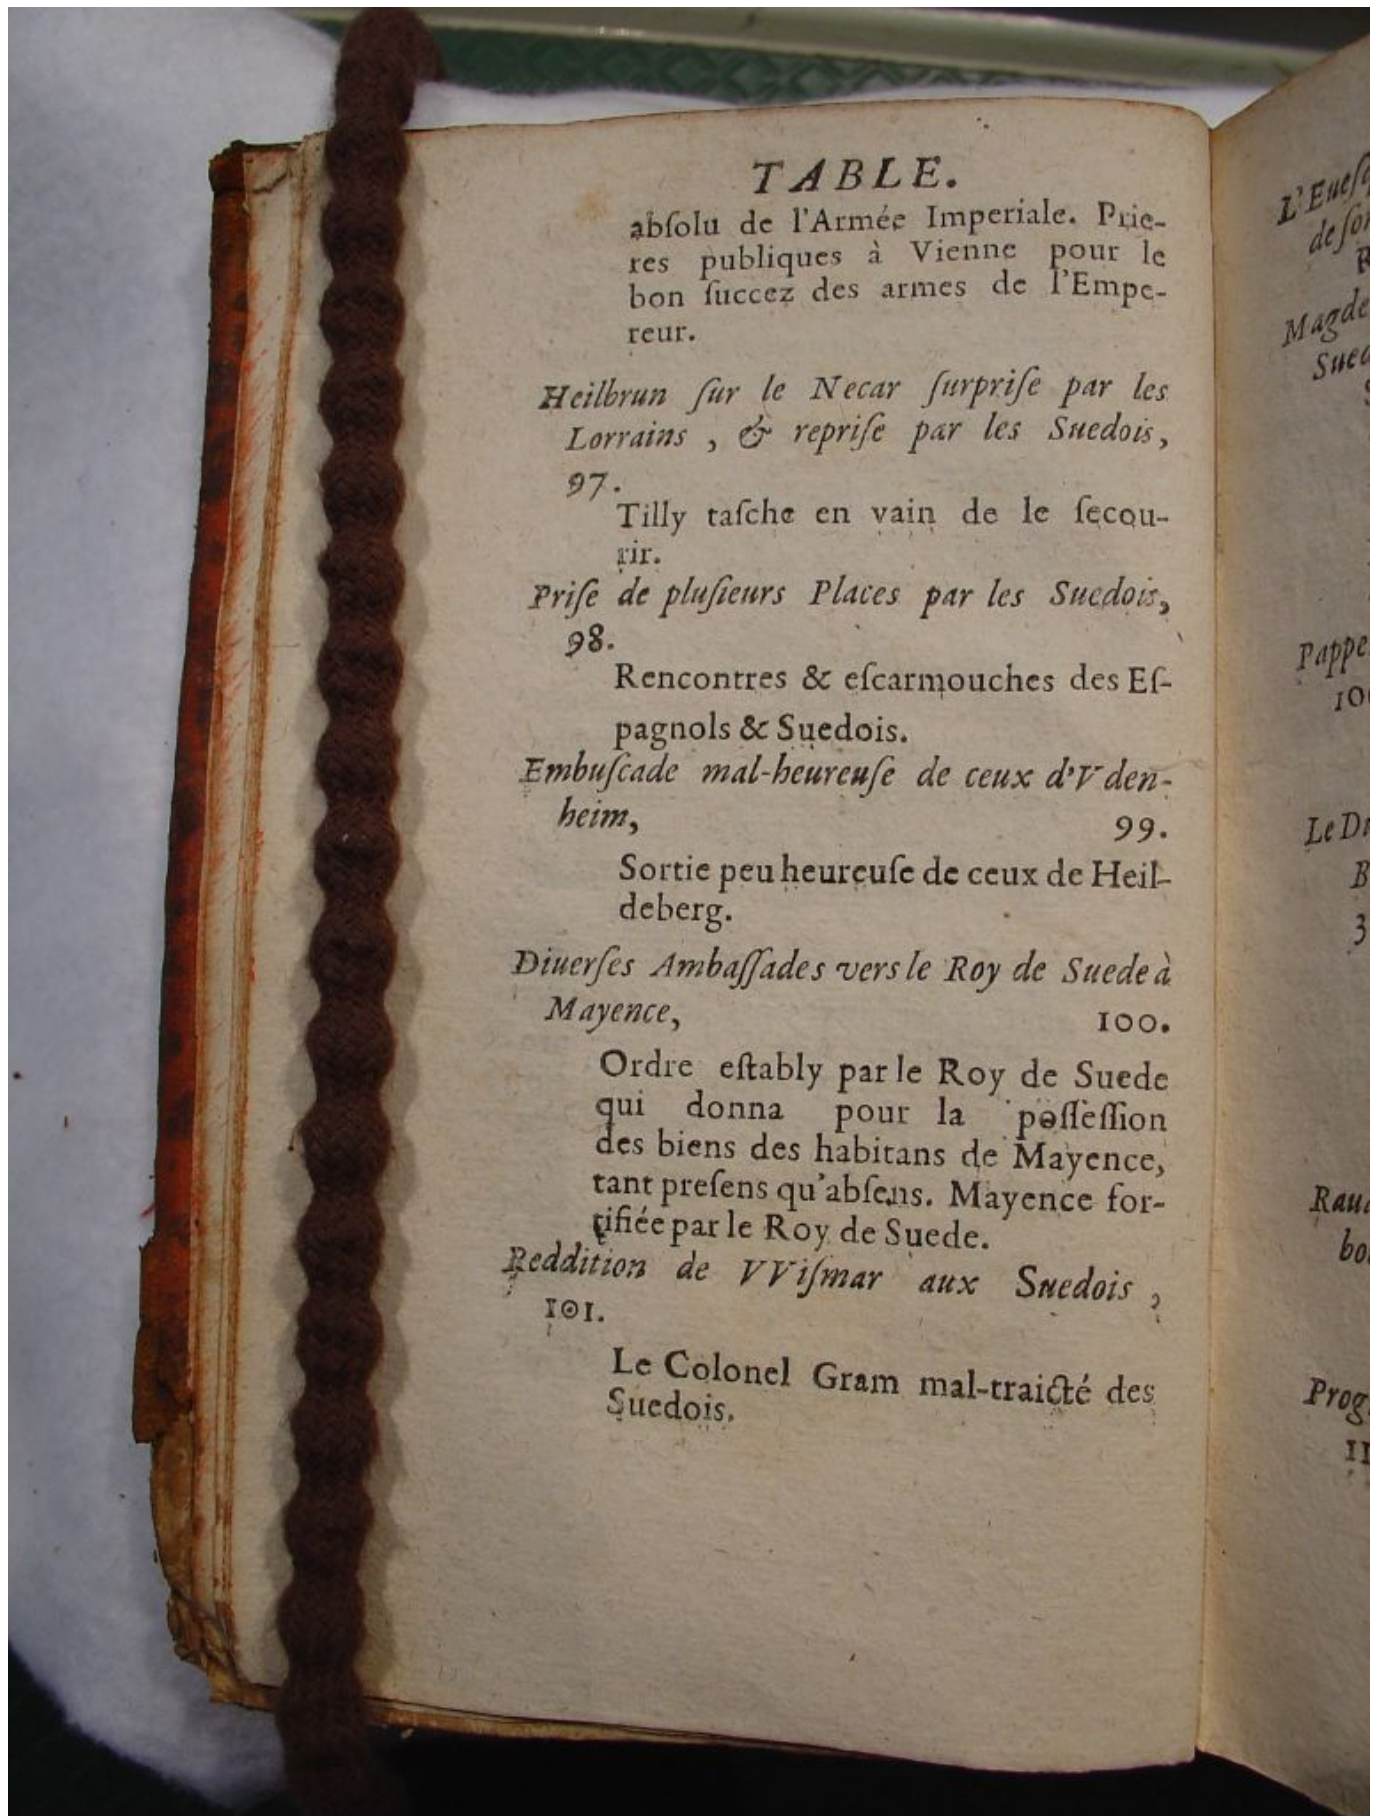 TABLE.
abſolu de l'Armée Imperiale. Prie-
res publiques à Vienne pour le
bon ſuccez des armes de l'Empe-
reur.
Heilbrun ſur le Necar ſurpriſe par les
Lorrains , & repriſe par les Suedois,
97.
Tilly taſche en vain de le ſecou-
rir.
Priſe de pluſieurs Places par les Suedois,
98.
Rencontres & eſcarmouches des Eſ-
pagnols & Suedois.
Embuſcade mal-heureuſe de ceux d'Vden-
heim, 99.
Sortie peu heureuſe de ceux de Heil-
deberg.
Diuerſes Ambaſſades vers le Roy de Suede à
Mayence, 100.
Ordre eſtably par le Roy de Suede
qui donna pour la poſſeſſion
des biens des habitans de Mayence,
tant preſens qu'abſens. Mayence for-
tifiée par le Roy de Suede.
Reddition de VViſmar aux Suedois ,
101.
Le Colonel Gram mal-traicté des
Suedois.
L'Eueſq
de ſon
R
Magde
Sued
Pappe
100
Le Du
B
3
Prog
11